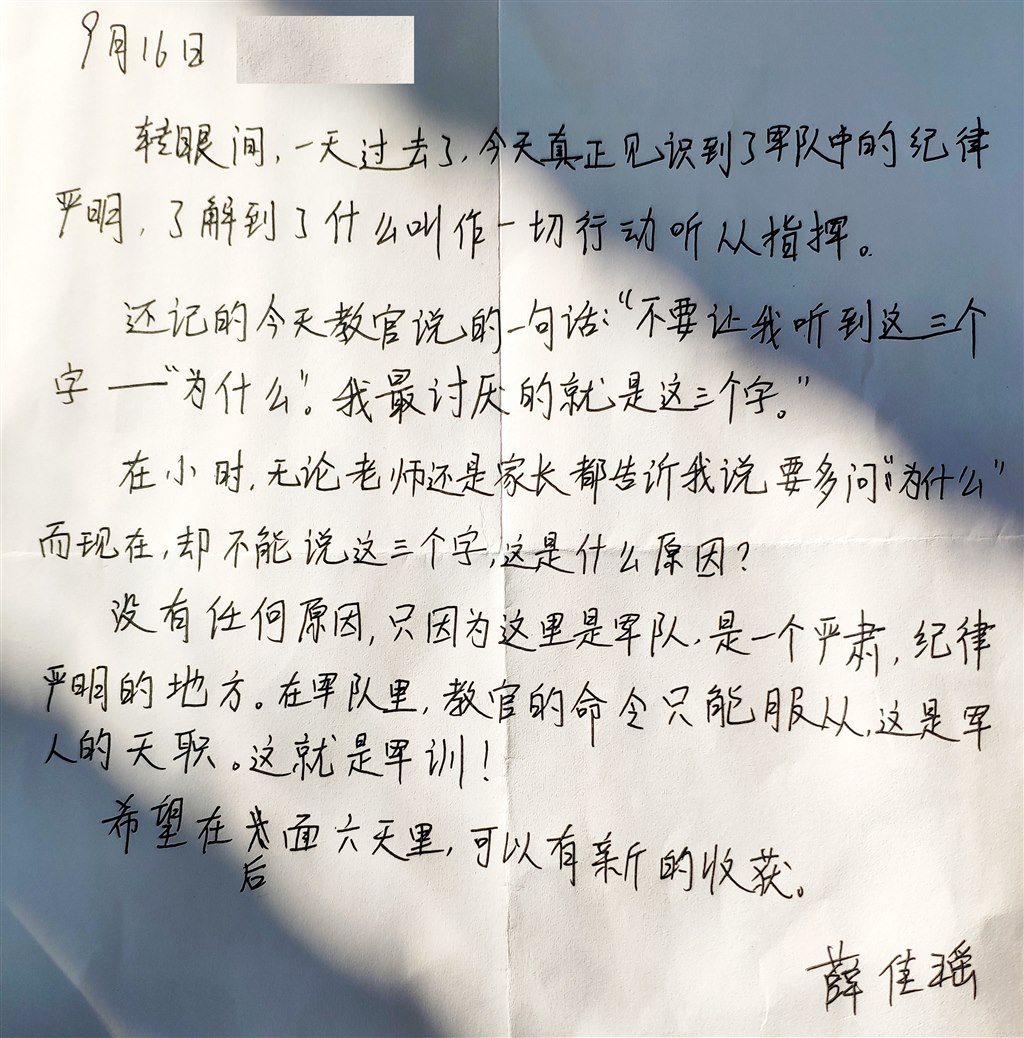 9月16日
转眼间,一天过去了,今天真正见识到了军队中的纪律
严明,了解到了什么叫作一切行动听从指挥。
还记的今天教官说的一句话:“不要让我听到这三个
字——“为什么”。我最讨厌的就是这三个字。”
在小时,无论老师还是家长都告诉我说要多问“为什么”
而现在,却不能说这三个字,这是什么原因?
没有任何原因,只因为这里是军队,是一个严肃,纪律
严明的地方。在军队里,教官的命令只能服从,这是军
人的天职。这就是军训!
希望在后面六天里,可以有新的收获。
薛佳瑶